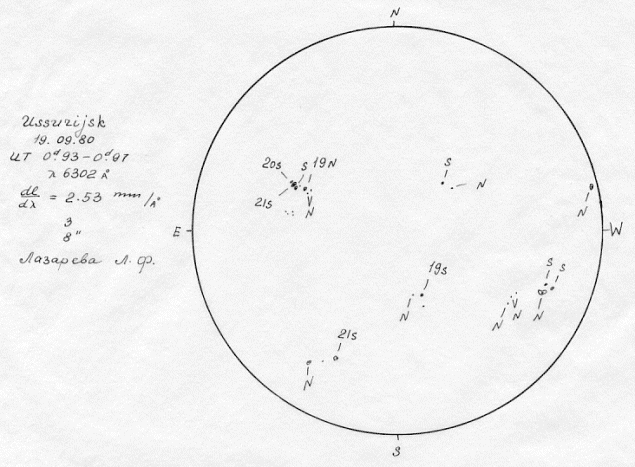 N
Ussurijsk
19.09.80
UT 0ᵈ93-0ᵈ97
λ 6302 Å
dl/dλ = 2.53 mm/Å
3
8"
Лазарева Л.Ф.
E
W
S
20s
S
19N
21s
N
S
N
N
19s
N
S
S
N
N
N
21s
N